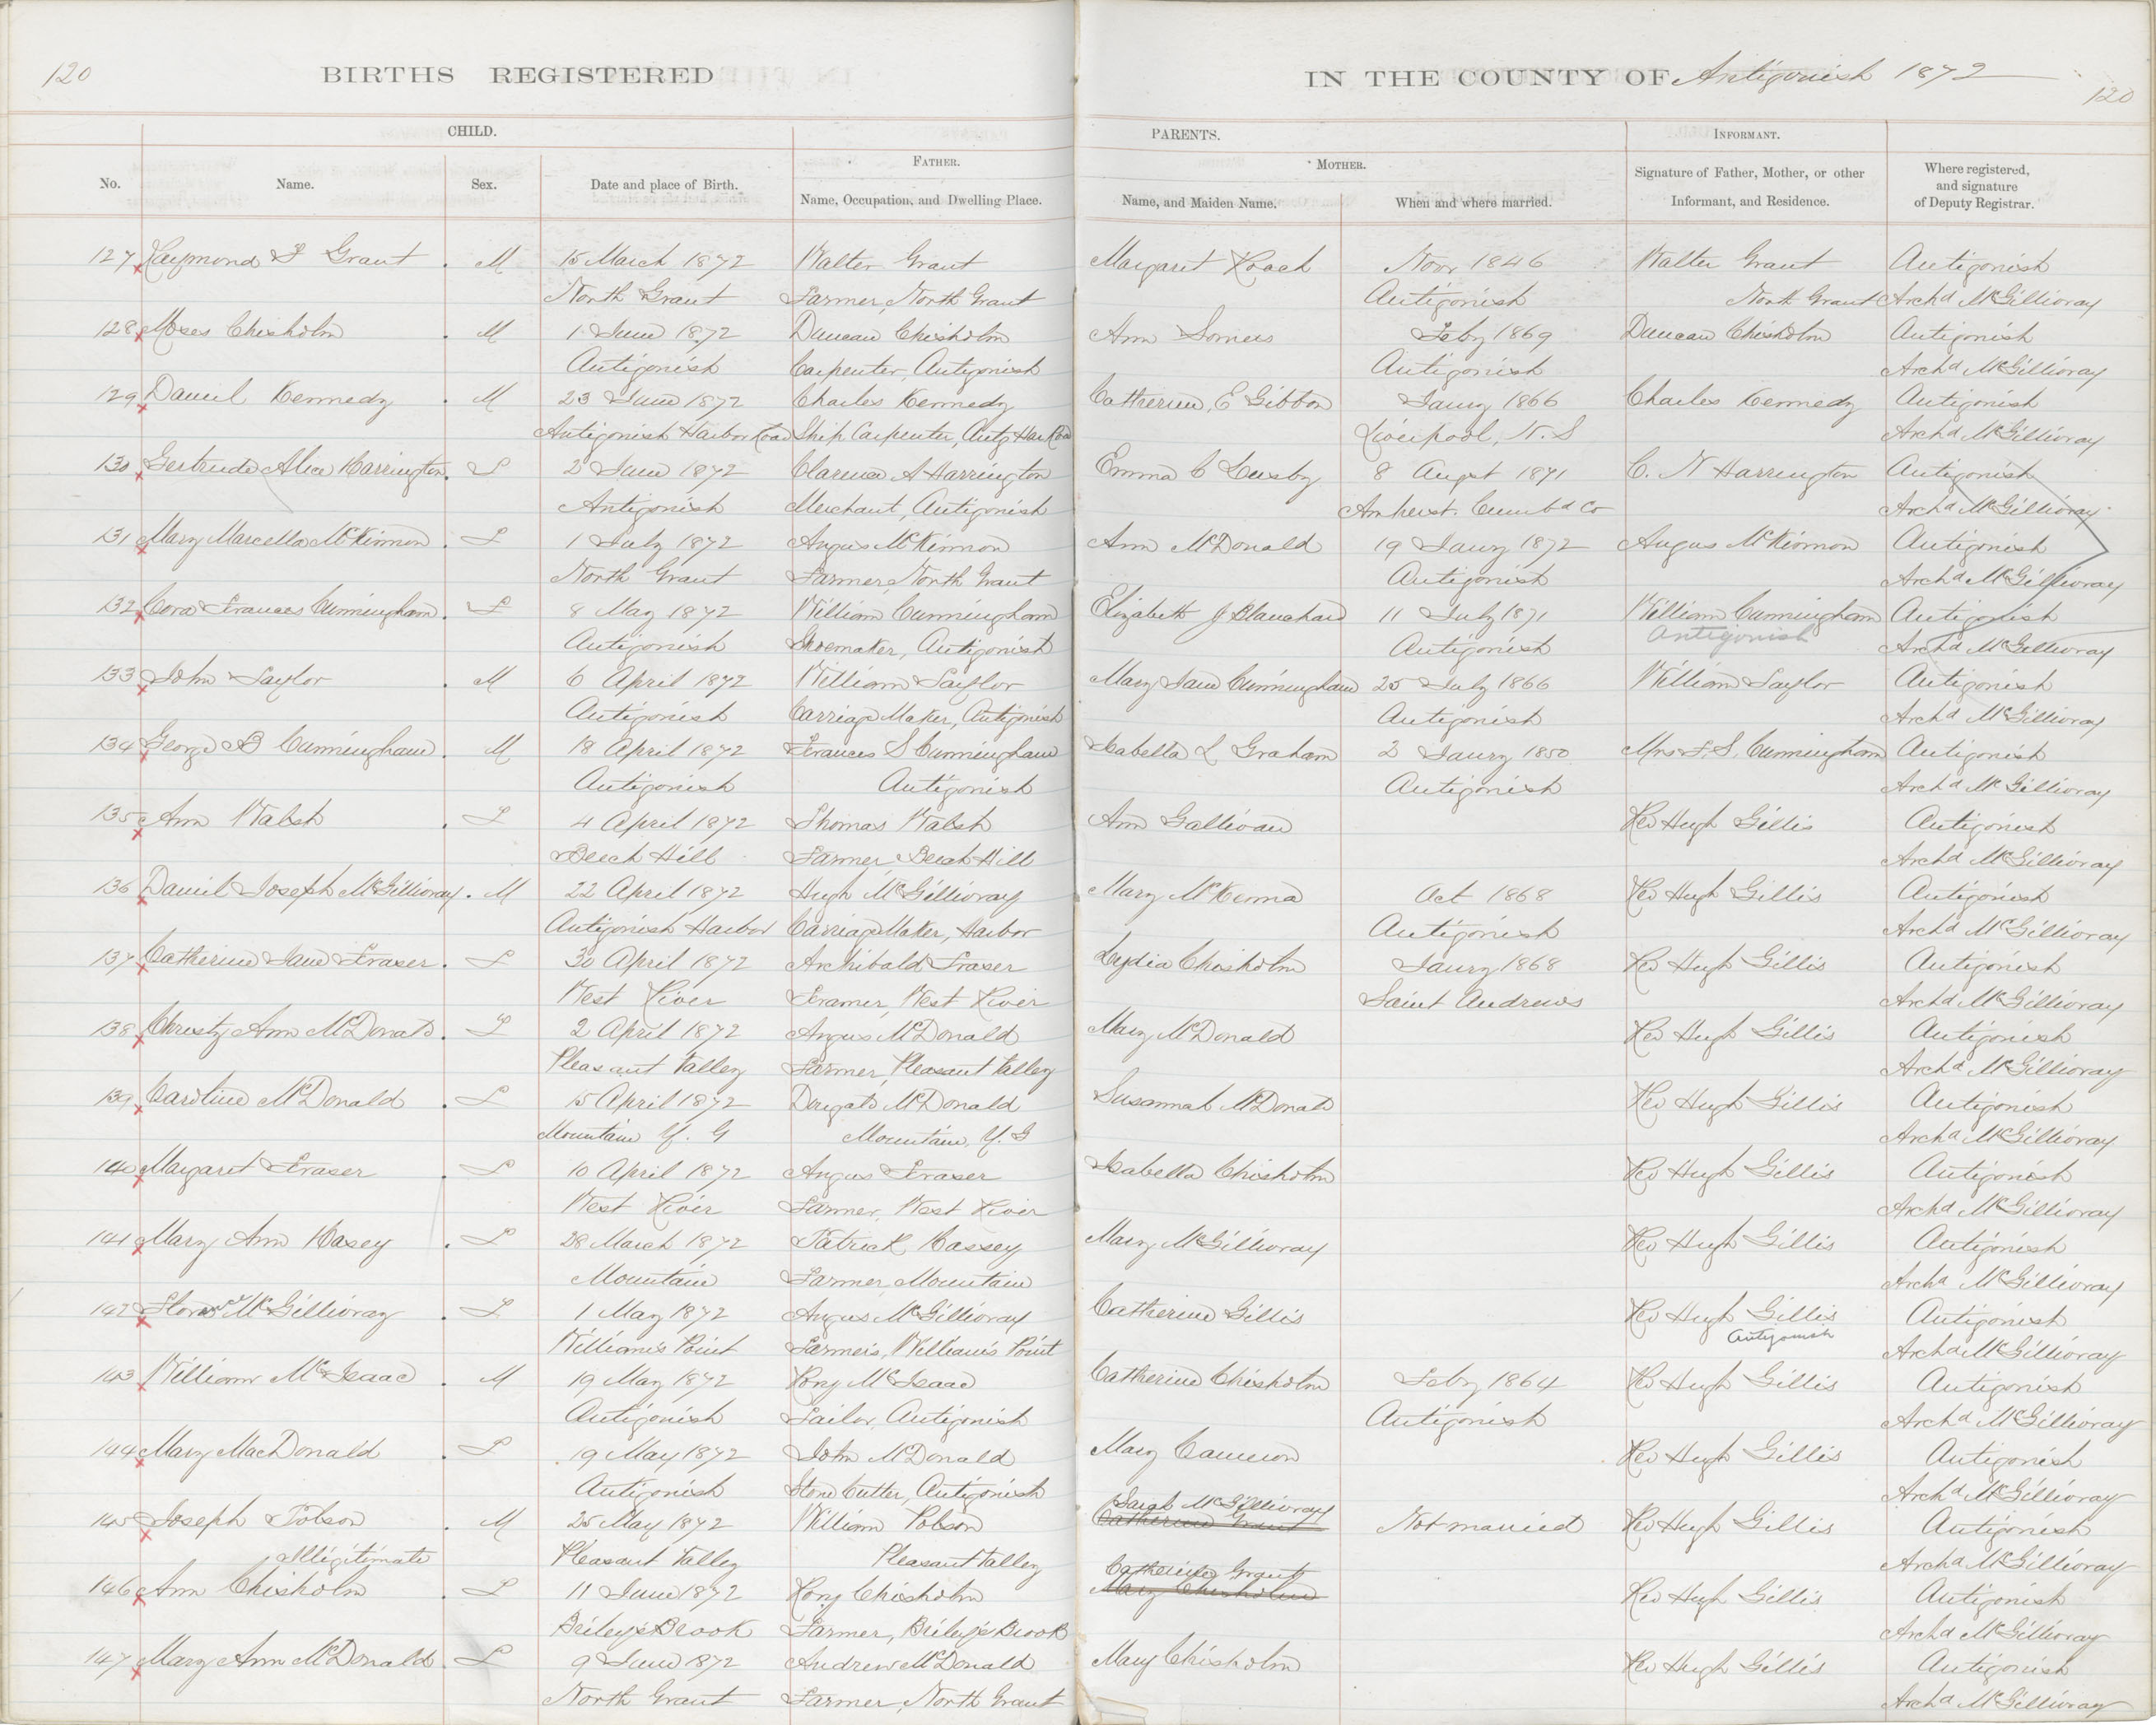 120
BIRTHS REGISTERED IN THE COUNTY OF Antigonish 1872
120
CHILD. PARENTS. INFORMANT.
FATHER. MOTHER.
No. Name. Sex. Date and place of Birth. Name, Occupation, and Dwelling Place. Name, and Maiden Name. When and where married. Signature of Father, Mother, or other Informant, and Residence. Where registered, and signature of Deputy Registrar.
127 Raymond F Grant . M 15 March 1872 Walter Grant Margaret Roach Novr 1846 Walter Grant Antigonish
North Grant Farmer, North Grant Antigonish North Grant Archd McGillivray
128 Moses Chisholm . M 1 June 1872 Duncan Chisholm Ann Somers Feby 1869 Duncan Chisholm Antigonish
Antigonish Carpenter, Antigonish Antigonish Archd McGillivray
129 Daniel Kennedy . M 23 June 1872 Charles Kennedy Catherine E Gibbon Jany 1866 Charles Kennedy Antigonish
Antigonish Harbor Road Ship Carpenter, Antg Har Road Liverpool, N.S Archd McGillivray
130 Gertrude Alice Harrington . F 2 June 1872 Clarence A Harrington Emma C Lusby 8 Augst 1871 C. N Harrington Antigonish
Antigonish Merchant, Antigonish Amherst Cumbd Co Archd McGillivray
131 Mary Marcella McKinnon . F 1 July 1872 Angus McKinnon Ann McDonald 19 Jany 1872 Angus McKinnon Antigonish
North Grant Farmer, North Grant Antigonish Archd McGillivray
132 Cora Frances Cunningham . F 8 May 1872 William Cunningham Elizabeth J Blanchard 11 July 1871 William Cunningham Antigonish
Antigonish Shoemaker, Antigonish Antigonish Antigonish Archd McGillivray
133 John Taylor . M 6 April 1872 William Taylor Mary Jane Cunningham 25 July 1866 William Taylor Antigonish
Antigonish Carriage Maker, Antigonish Antigonish Archd McGillivray
134 George B Cunningham . M 18 April 1872 Frances S Cunningham Isabella L Graham 2 Jany 1850 Mrs F. S. Cunningham Antigonish
Antigonish Antigonish Antigonish Archd McGillivray
135 Ann Walsh . F 4 April 1872 Thomas Walsh Ann Gallivan Rev Hugh Gillis Antigonish
Beech Hill Farmer, Beech Hill Archd McGillivray
136 Daniel Joseph McGillivray . M 22 April 1872 Hugh McGillivray Mary McKenna Oct 1868 Rev Hugh Gillis Antigonish
Antigonish Harbor Carriage Maker, Harbor Antigonish Archd McGillivray
137 Catherine Jane Fraser . F 30 April 1872 Archibald Fraser Lydia Chisholm Jany 1868 Rev Hugh Gillis Antigonish
West River Framer, West River Saint Andrews Archd McGillivray
138 Christy Ann McDonald . F 2 April 1872 Angus McDonald Mary McDonald Rev Hugh Gillis Antigonish
Pleasant Valley Farmer, Pleasant Valley Archd McGillivray
139 Caroline McDonald . F 15 April 1872 Dougald McDonald Susannah McDonald Rev Hugh Gillis Antigonish
Mountain Y. G Mountain, Y. G Archd McGillivray
140 Margaret Fraser . F 10 April 1872 Angus Fraser Isabella Chisholm Rev Hugh Gillis Antigonish
West River Farmer, West River Archd McGillivray
141 Mary Ann Hasey . F 28 March 1872 Patrick Hassey Mary McGillivray Rev Hugh Gillis Antigonish
Mountain Farmer, Mountain Archd McGillivray
142 Florence McGillivray . F 1 May 1872 Angus McGillivray Catherine Gillis Rev Hugh Gillis Antigonish
William's Point Farmer, William's Point Antigonish Archd McGillivray
143 William McIsaac . M 19 May 1872 Rory McIsaac Catherine Chisholm Feby 1864 Rev Hugh Gillis Antigonish
Antigonish Tailor, Antigonish Antigonish Archd McGillivray
144 Mary MacDonald . F 19 May 1872 John McDonald Mary Cameron Rev Hugh Gillis Antigonish
Antigonish Stone Cutter, Antigonish Archd McGillivray
Sarah McGillivray
145 Joseph Tobson . M 25 May 1872 William Pobson Catherine Grant Not married Rev Hugh Gillis Antigonish
Illigitimate Pleasant Valley Pleasant Valley Archd McGillivray
Catherine Grant
146 Ann Chisholm . F 11 June 1872 Rory Chisholm Mary Chisholm Rev Hugh Gillis Antigonish
Briley's Brook Farmer, Briley's Brook Archd McGillivray
147 Mary Ann McDonald . F 9 June 1872 Andrew McDonald Mary Chisholm Rev Hugh Gillis Antigonish
North Grant Farmer, North Grant Archd McGillivray